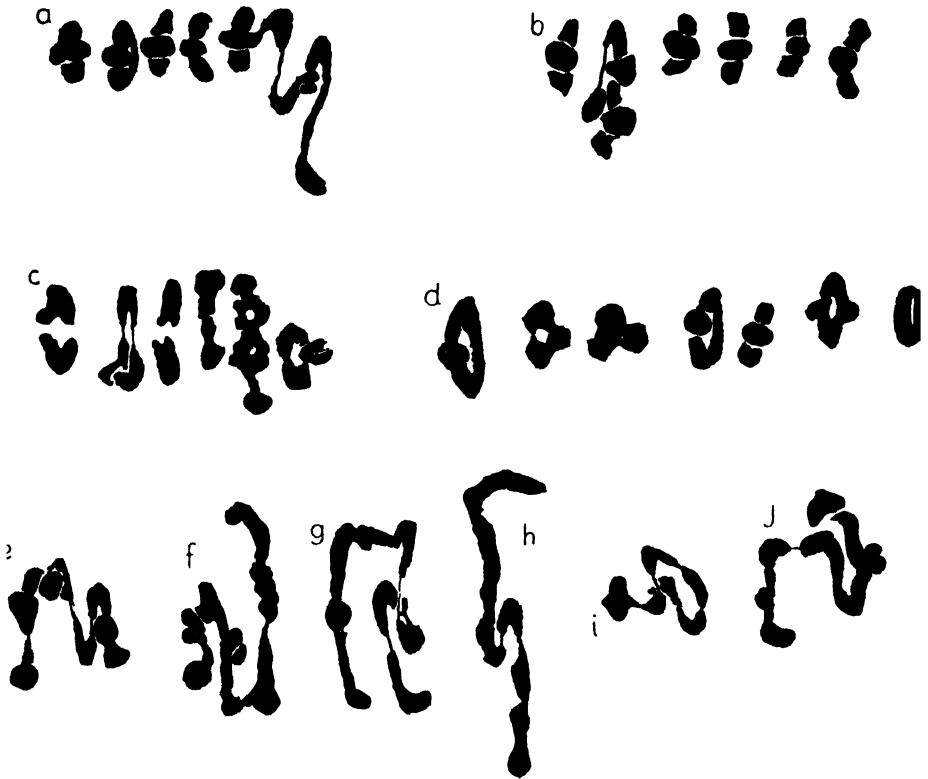 a b
c d
e f g h i J